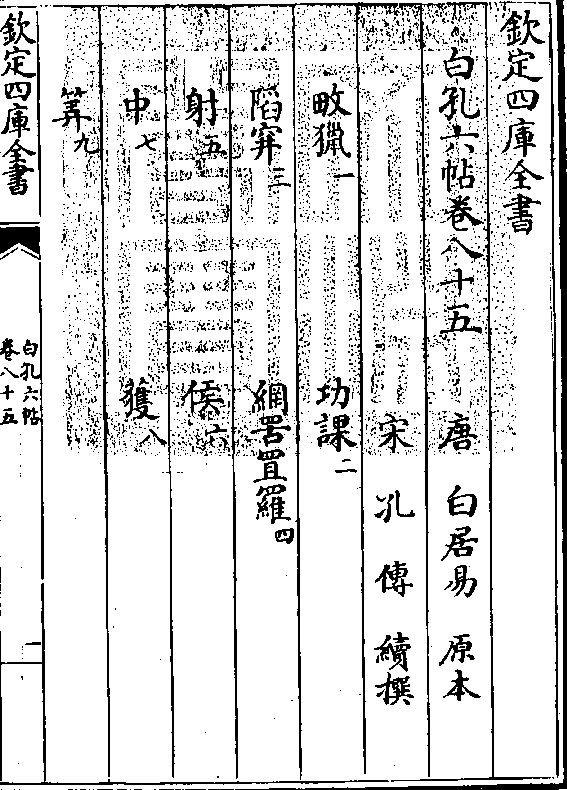 欽定四庫全書
白孔六帖卷八十五　唐　白居易　原本
宋　孔　傳　續撰
畋獵一　功課二
陷穽三　網罟罝羅四
射五　侯六
中七　獲八
筭九
欽定四庫全書
白孔六帖
卷八十五
一